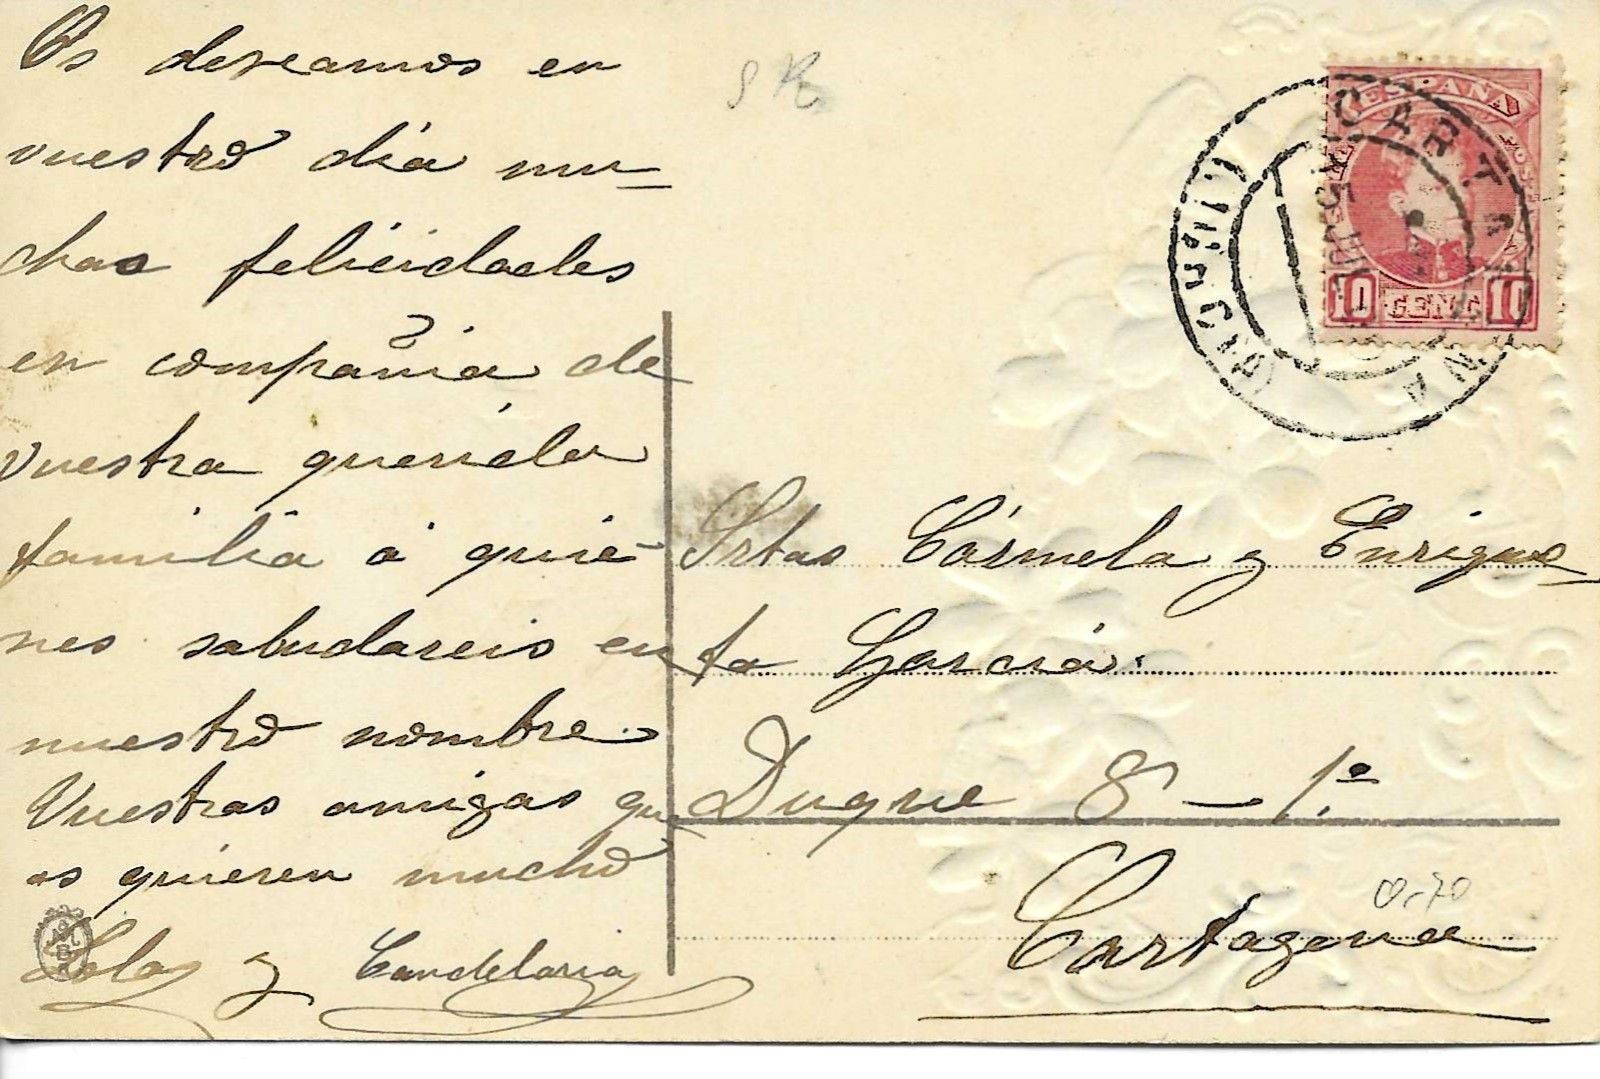 Os deseamos en
vuestro día mu-
chas felicidades
en compañia de
vuestra querida
familia á quie-
nes saludareis en
nuestro nombre.
Vuestras amigas que
os quieren mucho
Lola y Candelaria
Srtas Cármela y Enrique-
ta García.
Duque 8 - 1.º
Cartagena
0-70
ESPAÑA
10 CENT 10
CARTAGENA
(MURCIA)